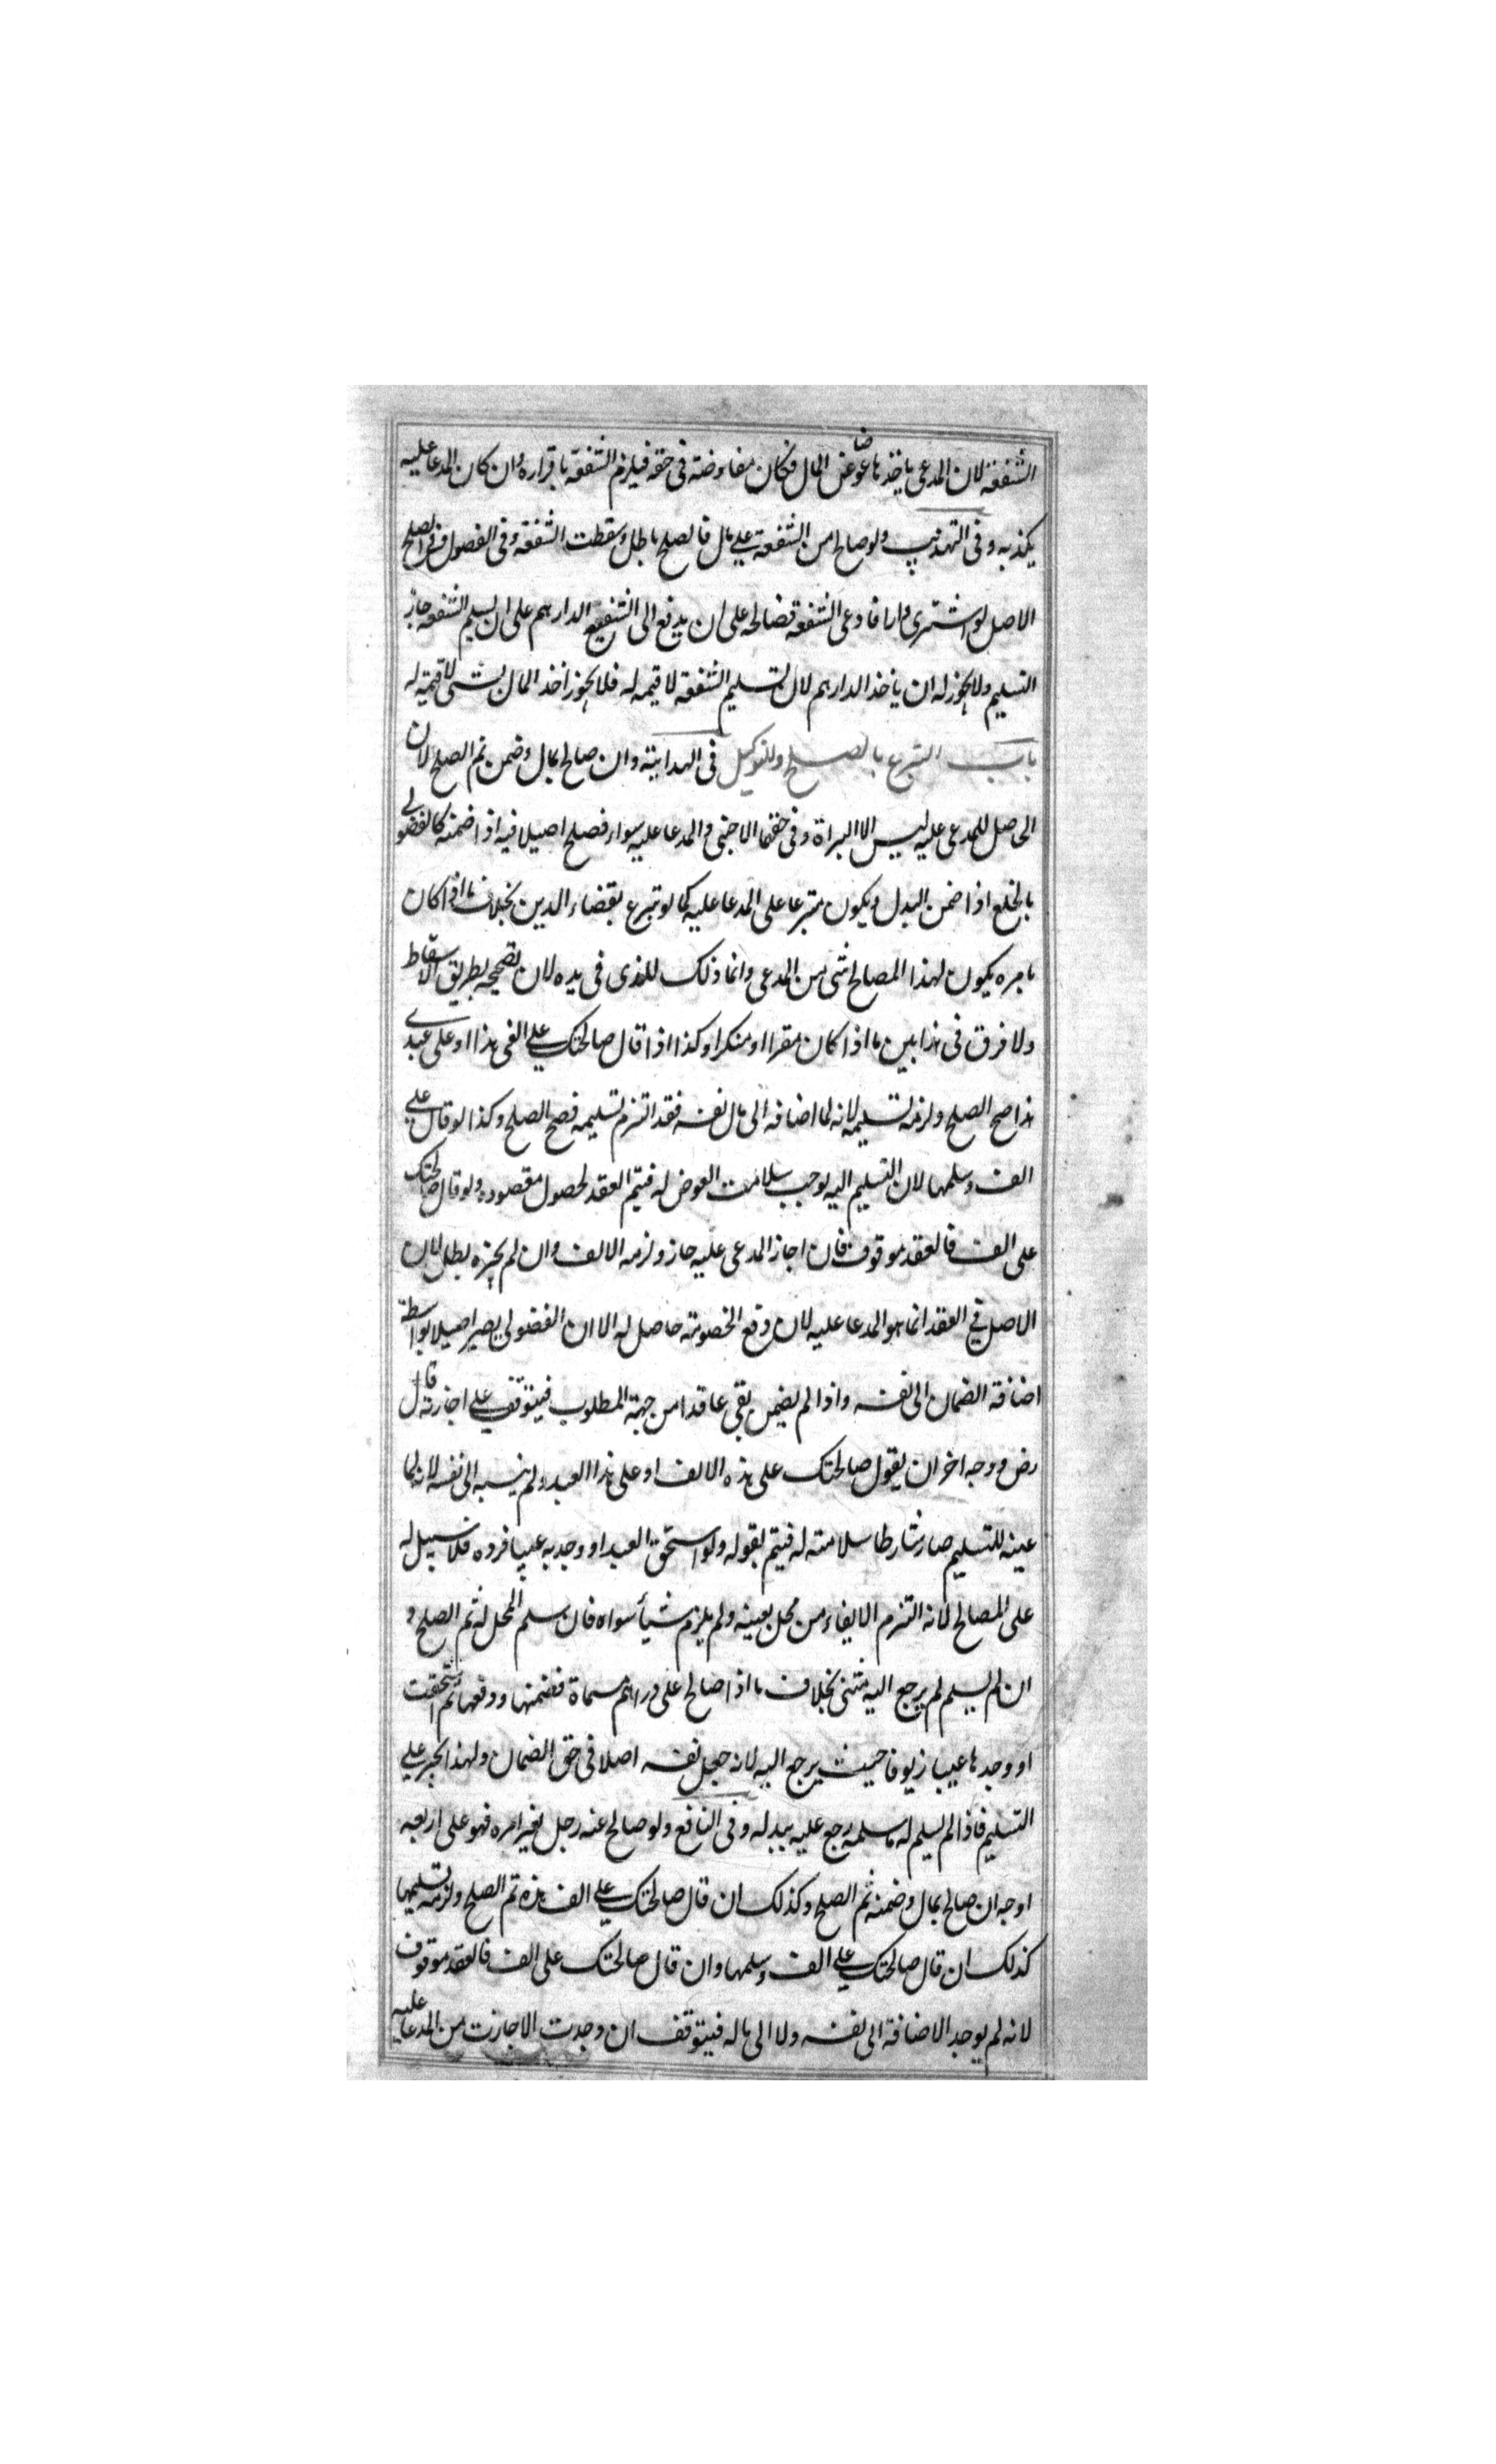 الشفعة لان المدعى ياخذها عوضا عن المال فكان مفاوضته فى حقه فيلزم الشفعة باقراره وان كان المدعا عليه
يكذبه وفى التهذيب ولو صالح من الشفعة على مال فالصلح باطل وسقطت الشفعة وفى الفصول وفى الصلح
الاصل لو اشترى دارا فادعى الشفعة فصالحه على ان يدفع الى الشفيع الدراهم على ان يسلم الشفعة جاز
التسليم ولا يجوز له ان ياخذ الدراهم لان تسليم الشفعة لا قيمه له فلا يجوز اخذ المال بشى لا قيمة له
باب التبرع بالصلح والتوكيل فى الهداية وان صالح بمال وضمن تم الصلح لان
الحاصل للمدعى عليه ليس الا البراة وفى حقها الاجنبى والمدعا عليه سواء فصلح اصيلا فيه اذا ضمنه كالفضولى
بالخلع اذا ضمن البدل ويكون متبرعا على المدعا عليه كما لو تبرع بقضاء الدين بخلاف ما اذا كان
بامره يكون لهذا المصالح شى من المدعى وانما ذلك للذى فى يده لان تصحيحه بطريق الاسقاط
ولا فرق فى هذا بين ما اذا كان مقرا او منكرا وكذا اذا قال صالحتك على الفى هذا او على عبدى
هذا صح الصلح ولزمه تسليمه لانه لما اضافه الى مال نفسه فقد التزم تسليمه فصح الصلح وكذا لو قال على
الف وسلمها لان التسليم اليه يوجب سلامت العوض له فيتم العقد لحصول مقصوده ولو قال صالحتك
على الف فالعقد موقوف فان اجاز المدعى عليه جاز ولزمه الالف وان لم يجزه بطل لان
الاصل فى العقد انما هو المدعا عليه لان دفع الخصومة حاصل له الا ان الفضولى يصير اصيلا بواسطة
اضافة الضمان الى نفسه واذا لم يضمن بقى عاقدا من جهة المطلوب فيتوقف على اجازته قال
رض ووجه اخر ان يقول صالحتك على هذه الالف او على هذا العبد ولم ينسبه الى نفسه لانه لما
عينه للتسليم صار شارطا سلامته له فيتم بقوله ولو استحق العبد او وجد به عيبا فرده فلا سبيل له
على المصالح لانه التزم الايفاء من محل بعينه ولم يلزم شيأ سواه فان سلم المحل له تم الصلح و
ان لم يسلم لم يرجع اليه بشئ بخلاف ما اذا صالح على دراهم مسماة فضمنها ودفعها ثم استحقت
او وجدها عيبا زيوفا حيث يرجع اليه لانه جعل نفسه اصلا فى حق الضمان ولهذا يجبر على
التسليم فاذا لم يسلم له ما سلمه رجع عليه ببدله وفى النافع ولو صالح عنه رجل بغير امره فهو على اربعه
اوجه ان صالح بمال وضمنه تم الصلح وكذلك ان قال صالحتك على الف هذه تم الصلح ولزمه تسليمها
كذلك ان قال صالحتك على الف وسلمها وان قال صالحتك على الف فالعقد موقوف
لانه لم يوجد الاضافة الى نفسه ولا الى ماله فيتوقف ان وجدت الاجازت من المدعا عليه